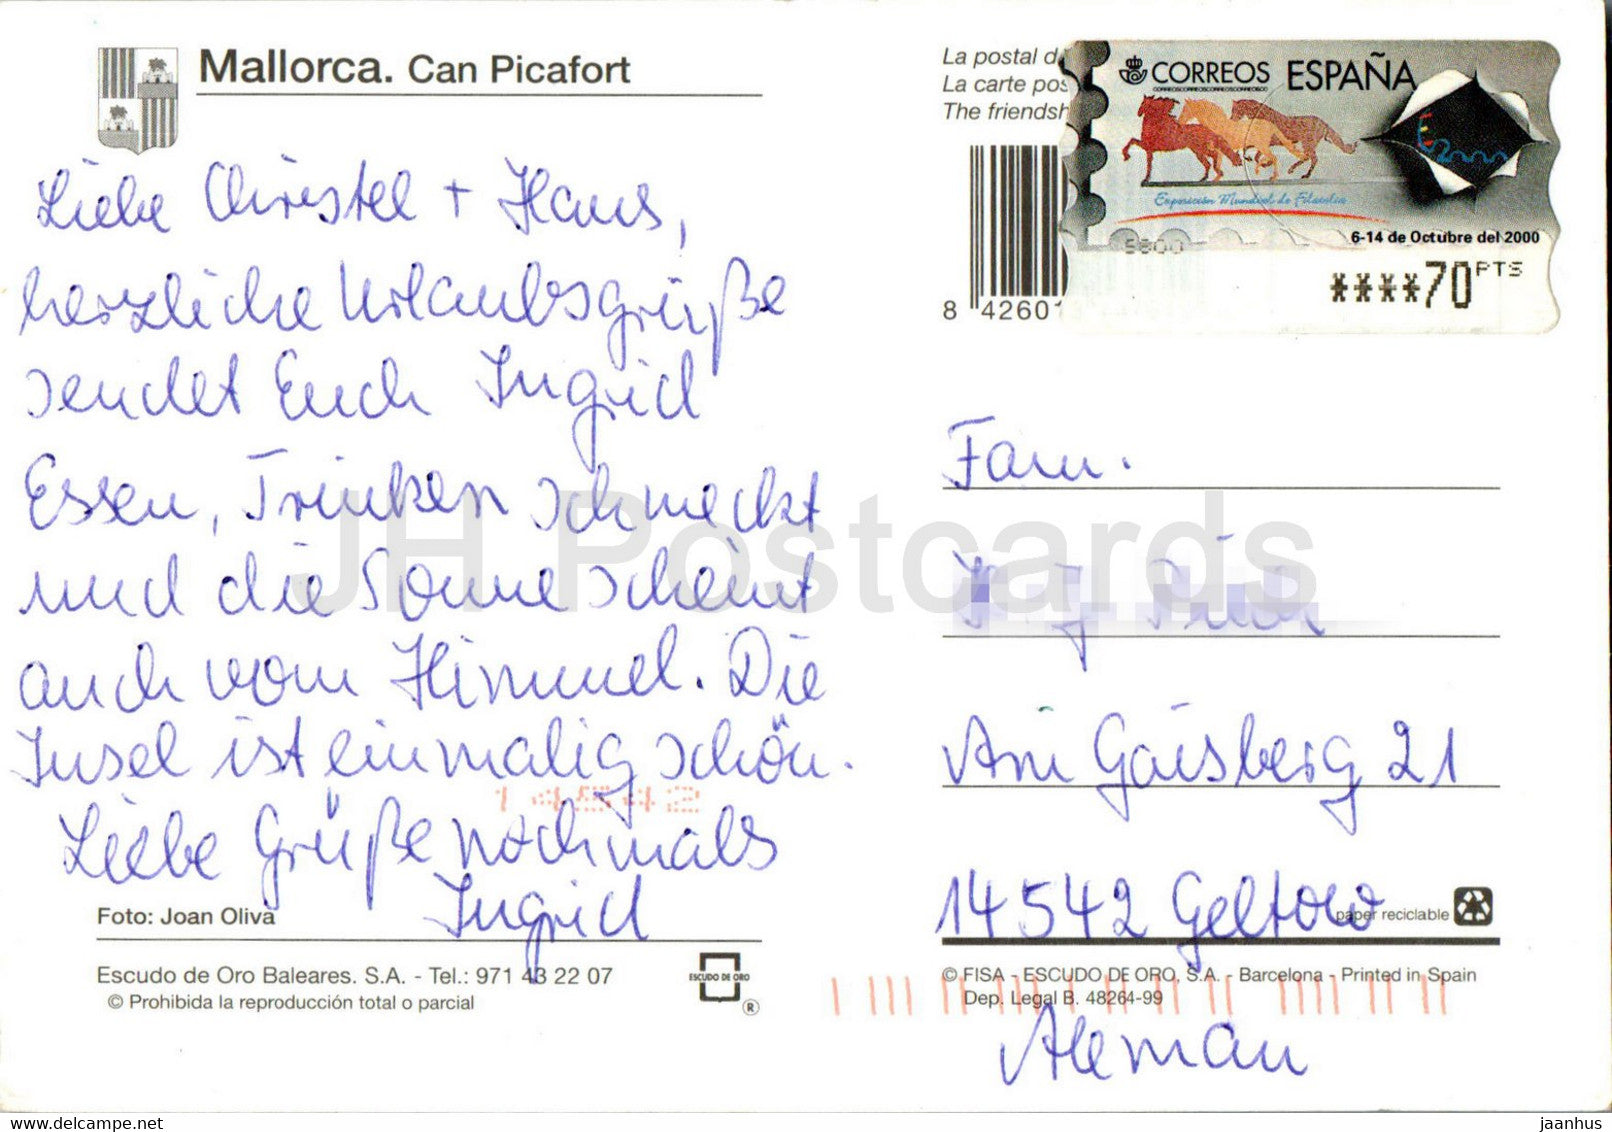 Mallorca. Can Picafort
Liebe Christel + Hans,
herzliche Urlaubsgrüße
sendet Euch Ingrid
Essen, Trinken schmeckt
und die Sonne scheint
auch vom Himmel. Die
Insel ist einmalig schön.
Liebe Grüße nochmals
Ingrid
14542
Foto: Joan Oliva
Escudo de Oro Baleares. S.A. - Tel.: 971 43 22 07
© Prohibida la reproducción total o parcial
ESCUDO DE ORO
®
La postal d
La carte pos
The friendsh
8 42601
CORREOS ESPAÑA
Exposición Mundial de Filatelia
6-14 de Octubre del 2000
****70 PTS
Fam.
Am Gaisberg 21
14542 Geltow
paper reciclable
© FISA - ESCUDO DE ORO, S.A. - Barcelona - Printed in Spain
Dep. Legal B. 48264-99
Aleman
JH Postcards
jaanhus @